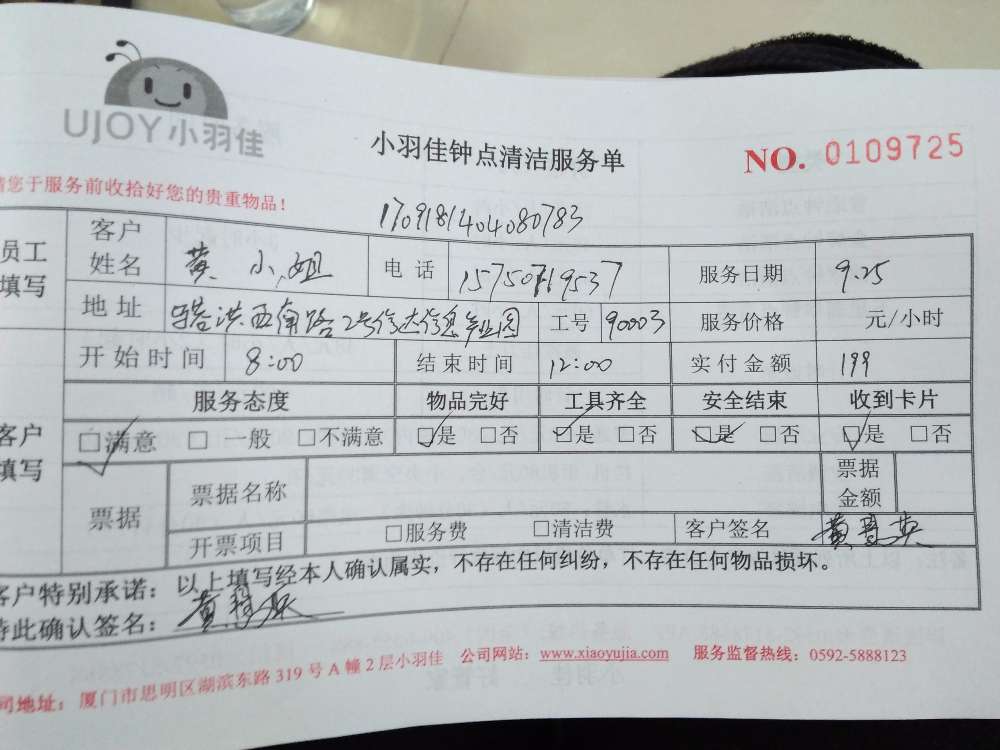 UJOY小羽佳
小羽佳钟点清洁服务单
NO. 0109725
请您于服务前收拾好您的贵重物品！
1709181404080783
员工填写 客户姓名 黄小姐 电话 15750719537 服务日期 9.25
地址 西南路2号信达信息产业园 工号 90003 服务价格 元/小时
开始时间 8:00 结束时间 12:00 实付金额 199
服务态度 物品完好 工具齐全 安全结束 收到卡片
客户填写 □满意 □一般 □不满意 □是 □否 □是 □否 □是 □否 □是 □否
票据 票据名称 票据金额
开票项目 □服务费 □清洁费 客户签名 黄
客户特别承诺：以上填写经本人确认属实，不存在任何纠纷，不存在任何物品损坏。
特此确认签名：黄
公司地址：厦门市思明区湖滨东路319号A幢2层小羽佳 公司网站：www.xiaoyujia.com 服务监督热线：0592-5888123